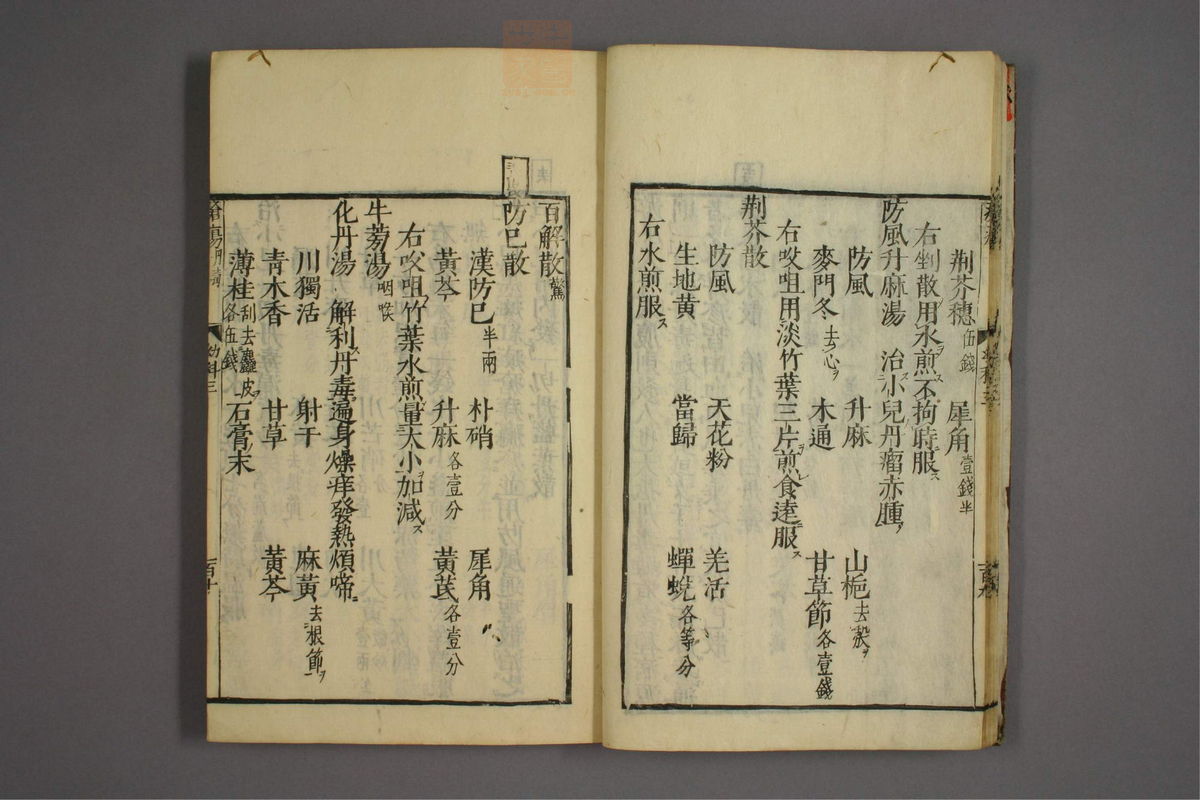 荆芥穗伍錢 犀角壹錢半
右剉散用水煎不拘時服ス
防風升麻湯 治ス小兒丹瘤赤腫
防風 升麻 山梔去殼ヲ
麥門冬去心ヲ 木通 甘草節各壹錢
右㕮咀用淡竹葉三片ヲ煎食遠服ス
荆芥散
防風 天花粉 羌活
生地黄 當歸 蟬蛻各等分
右水煎服ス
百解散驚
防巳散
漢防巳半兩 朴硝 犀角
黄芩 升麻各壹分 黄芪各壹分
右㕮咀竹葉水煎量大小ヲ加減ス
牛蒡湯咽喉
化丹湯 解利ス丹毒遍身燥痒發熱煩啼
川獨活 射干 麻黄去根節ヲ
青木香 甘草 黄芩
薄桂刮去麤皮ヲ各伍錢 石膏末
幼科三
百十